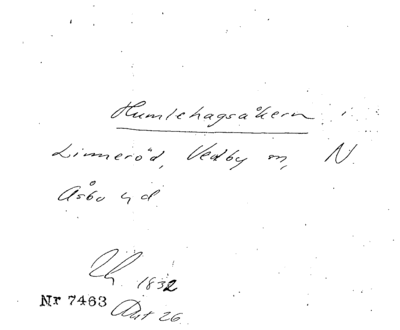 Humlehagsåkern i
Linneröd, Vedby sn, N
Åsbo hd
1832
Nr 7463
Akt 26